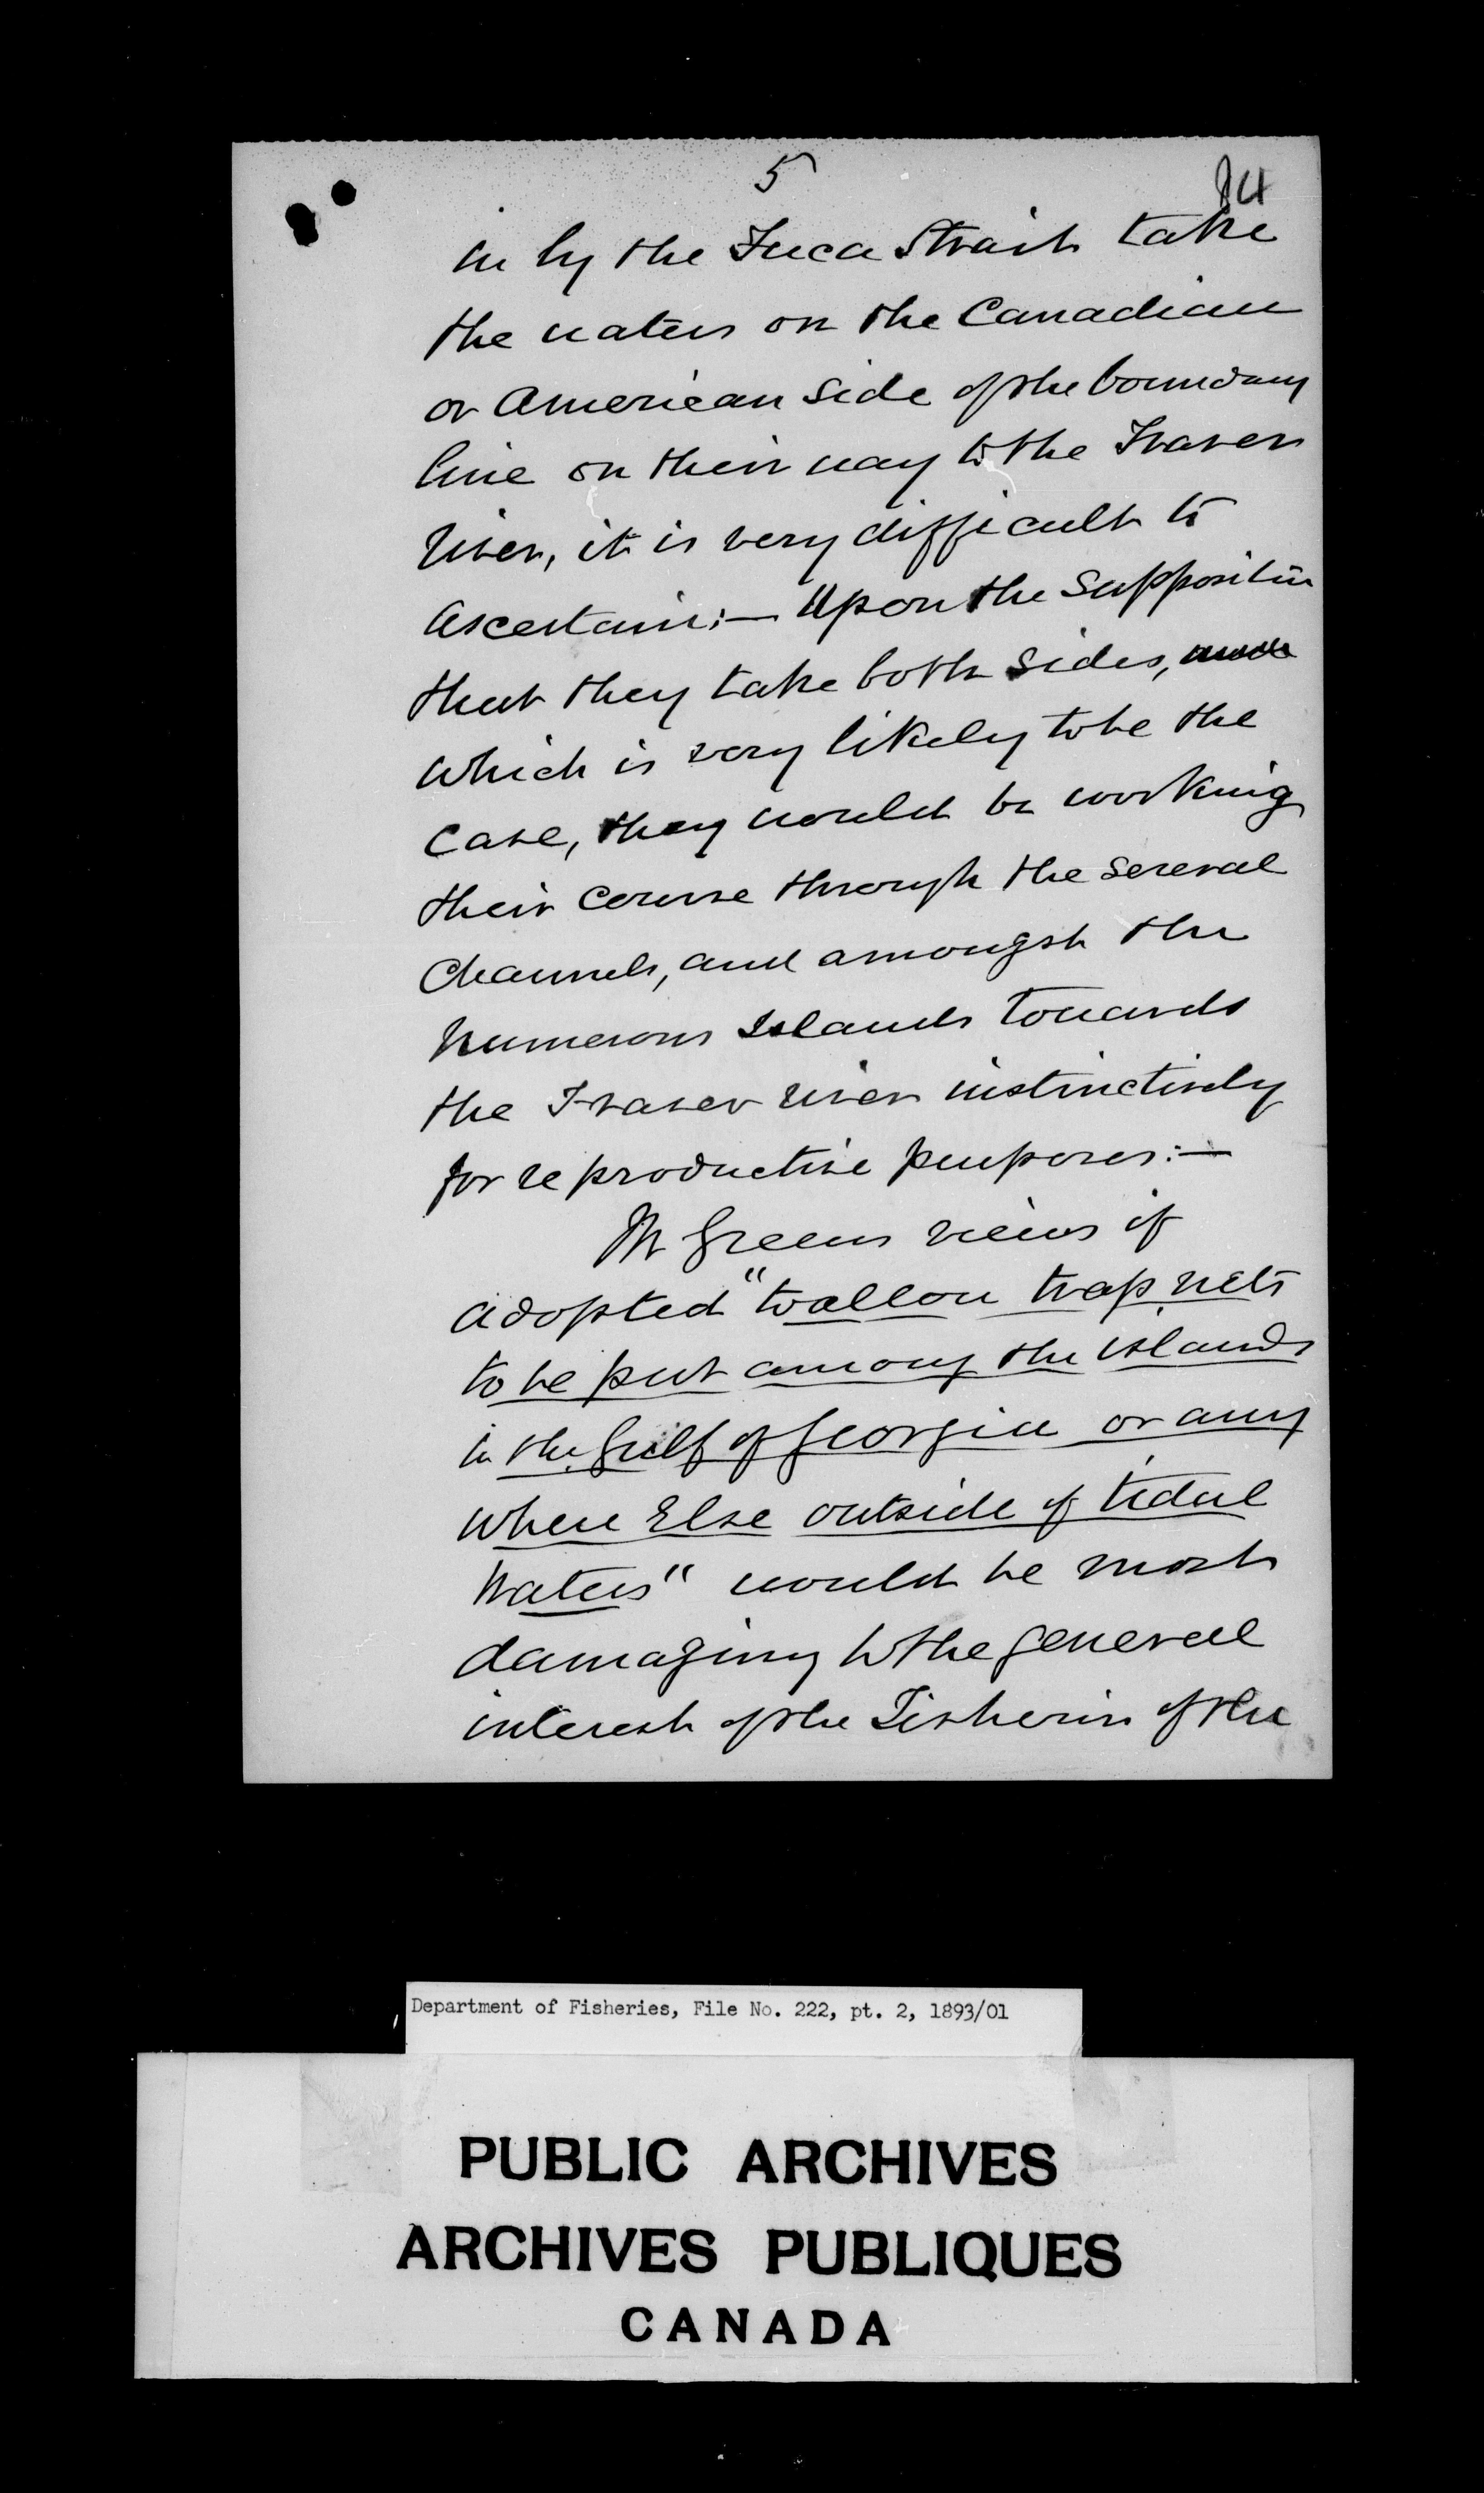 5
84
in by the Fuca Strait take
the waters on the Canadian
or American side of the boundary
line on their way to the Fraser
River, it is very difficult to
ascertain:— Upon the supposition
that they take both sides,
which is very likely to be the
case, they would be working
their course through the several
Channels, and amongst the
numerous Islands towards
the Fraser River instinctively
for reproductive purposes:—
Mr Greens views if
adopted "to allow trap nets
to be put among the islands
in the Gulf of Georgia or any
where Else outside of tidal
waters" would be most
damaging to the general
interest of the Fisheries of the
Department of Fisheries, File No. 222, pt. 2, 1893/01
PUBLIC ARCHIVES
ARCHIVES PUBLIQUES
CANADA